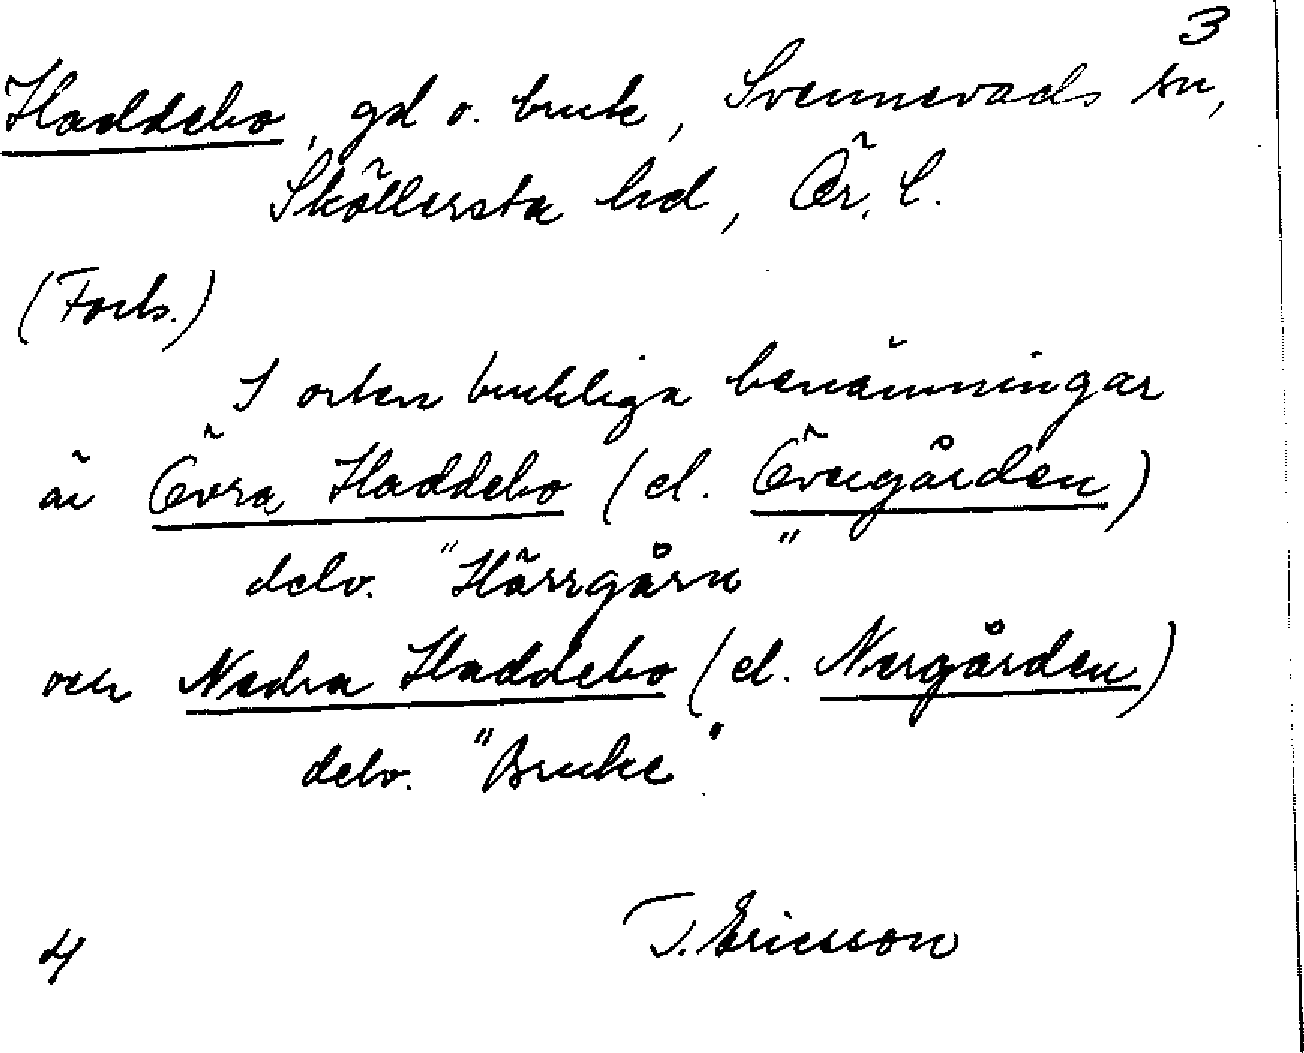 3
Haddebo, gd o. bruk, Svennevads sn,
Sköllersta hd, Ör. l.
(Forts.)
I orten brukliga benämningar
är Övra Haddebo (el. Övregården)
delv. "Härrgårn"
och Nedra Haddebo (el. Nergården)
delv. "Bruke"
T. Ericsson
4